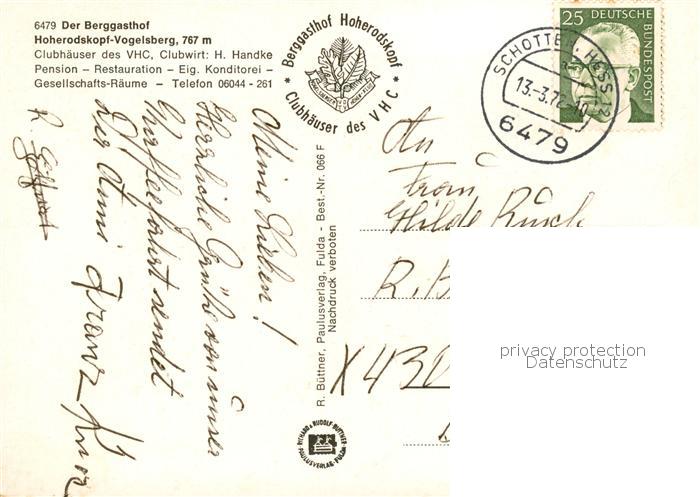 6479 Der Berggasthof
Hoherodskopf-Vogelsberg, 767 m
Clubhäuser des VHC, Clubwirt: H. Handke
Pension – Restauration – Eig. Konditorei –
Gesellschafts-Räume – Telefon 06044 - 261
* Berggasthof Hoherodskopf *
Clubhäuser des VHC
25 DEUTSCHE BUNDESPOST
SCHOTTEN, HESS 2
13.-3.72-10
6479
Meine Lieben!
Herzliche Grüße von unser
Kaffeefahrt sendet
Franz
R. Büttner, Paulusverlag, Fulda - Best.-Nr. 066 F
Nachdruck verboten
RICHARD & RUDOLF BÜTTNER
PAULUSVERLAG · FULDA
An
Frau
Hilde
R. B
X 430
privacy protection
Datenschutz